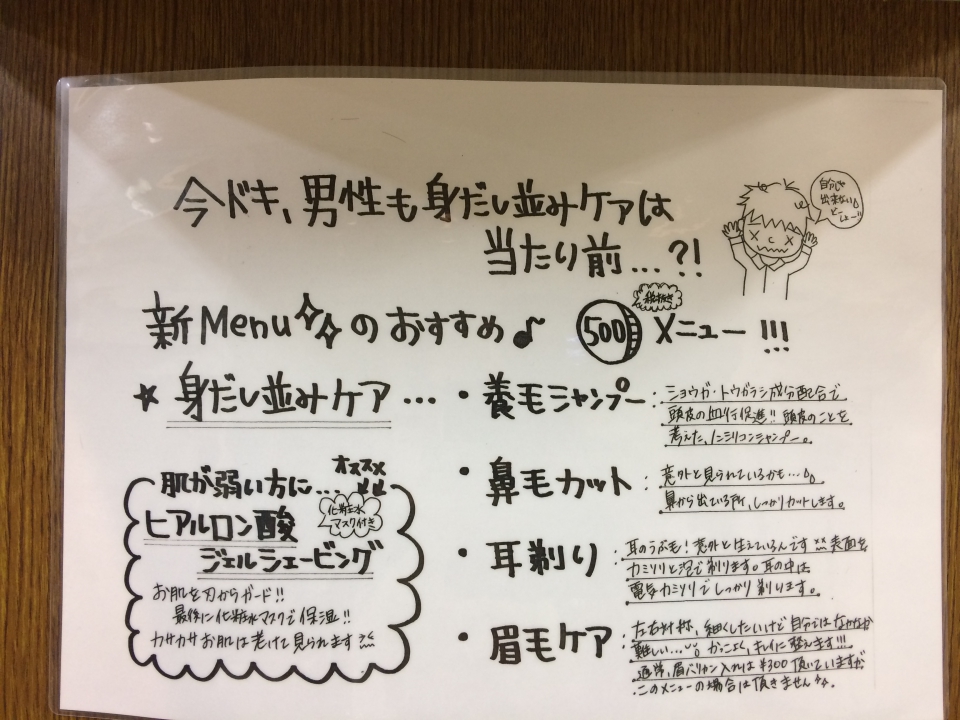 今ドキ、男性も身だし並みケアは
当たり前...?!
自分じゃ
出来ない
新Menuのおすすめ♪
税抜き
500
メニュー!!!
★身だし並みケア...
・養毛シャンプー:
ショウガ・トウガラシ成分配合で
頭皮の血行促進!!頭皮のことを
考えた、ノンシリコンシャンプー。
・鼻毛カット:
意外と見られているかも...
鼻から出ている所、しっかりカットします。
・耳剃り:
耳のうぶ毛!意外と生えているんです 表面を
カミソリと泡で剃ります。耳の中は
電気カミソリでしっかり剃います。
・眉毛ケア:
左右対称、細くしたいけど自分ではなかなか
難しい... かっこよく、キレイに整えます!!!
通常、眉バリカン入れは¥300頂いていますが
このメニューの場合は頂きません
肌が弱い方に...
オススメ
ヒアルロン酸
ジェルシェービング
化粧水
マスク付き
お肌を刃からガード!!
最後に化粧水マスクで保湿!!
カサカサお肌は老けて見られます